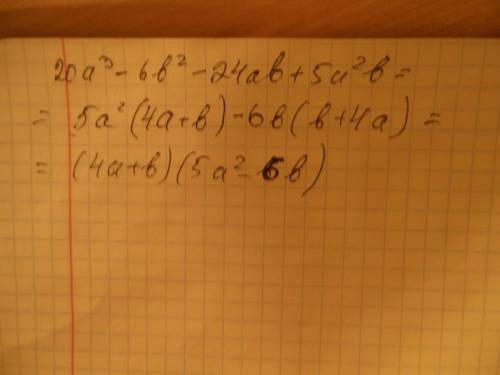 20a³ - 6b² - 24ab + 5a²b =
= 5a²(4a+b) - 6b(b+4a) =
= (4a+b)(5a² - 6b)